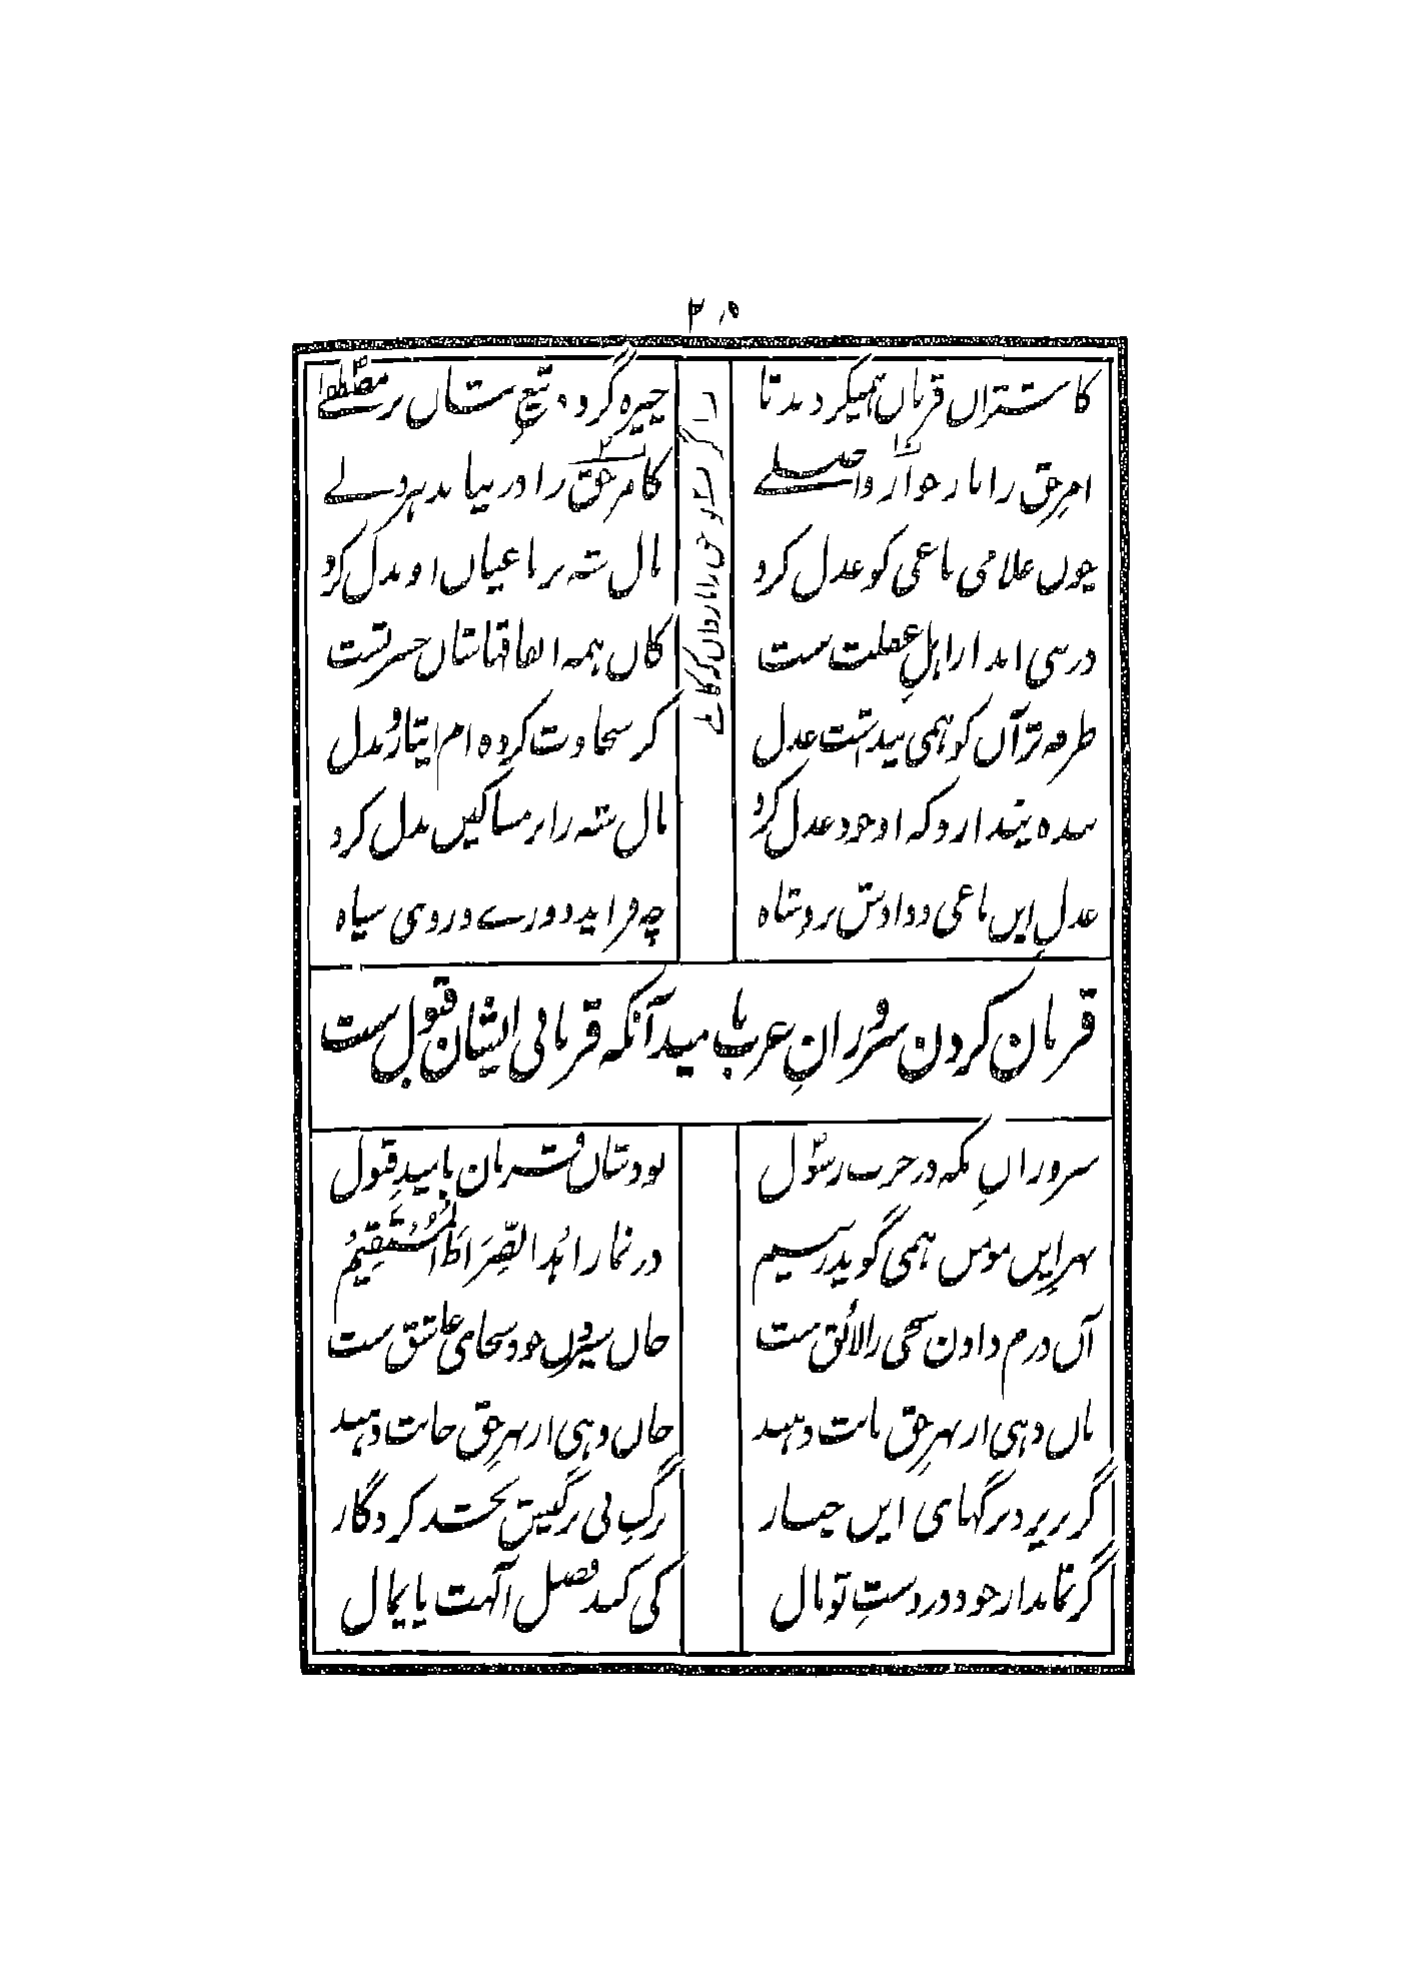 ۲۰۵
کاشتران قربان همیکردند تا چیره گردد تیغ شان بر مصطفےٰ
امرِ حق را باز جو از واصلے کامرِ حق را در نیابد هر دلے
چوں غلامی باغی کو عدل کرد مال شه بر باغیاں او بذل کرد
در نبی انذار اهلِ غفلت ست کاں همه انفاقهاشاں حسرتست
طرفه تر آں کو همی پنداشت عدل کز سخاوت کرده ام ایثار و بذل
بنده پندارد که او خود عدل کرد مال شه را بر مساکیں بذل کرد
عدلِ ایں باغی و دادش بر شاه چه فزاید دورے و روی سیاه
قربان کردن سرورانِ عرب با مید آنکه قربانی ایشان قبول ست
سرورانِ مکه در حرب رسول بودشاں قربان بامیدِ قبول
بهر ایں مومن همی گوید ز بیم در نماز اهد الصِّرَاطَ الْمُسْتَقِیْمُ
آں درم دادن سخی را لائق ست جاں سپردن خود سخای عاشق ست
ناں دهی از بهرِ حق نانت دهند جاں دهی از بهرِ حق جانت دهند
گر بریزد برگهای ایں چنار برگِ بی برگیش بخشد کردگار
گر نماند از جود در دستِ تو مال کی کند فضل آلهت پایمال